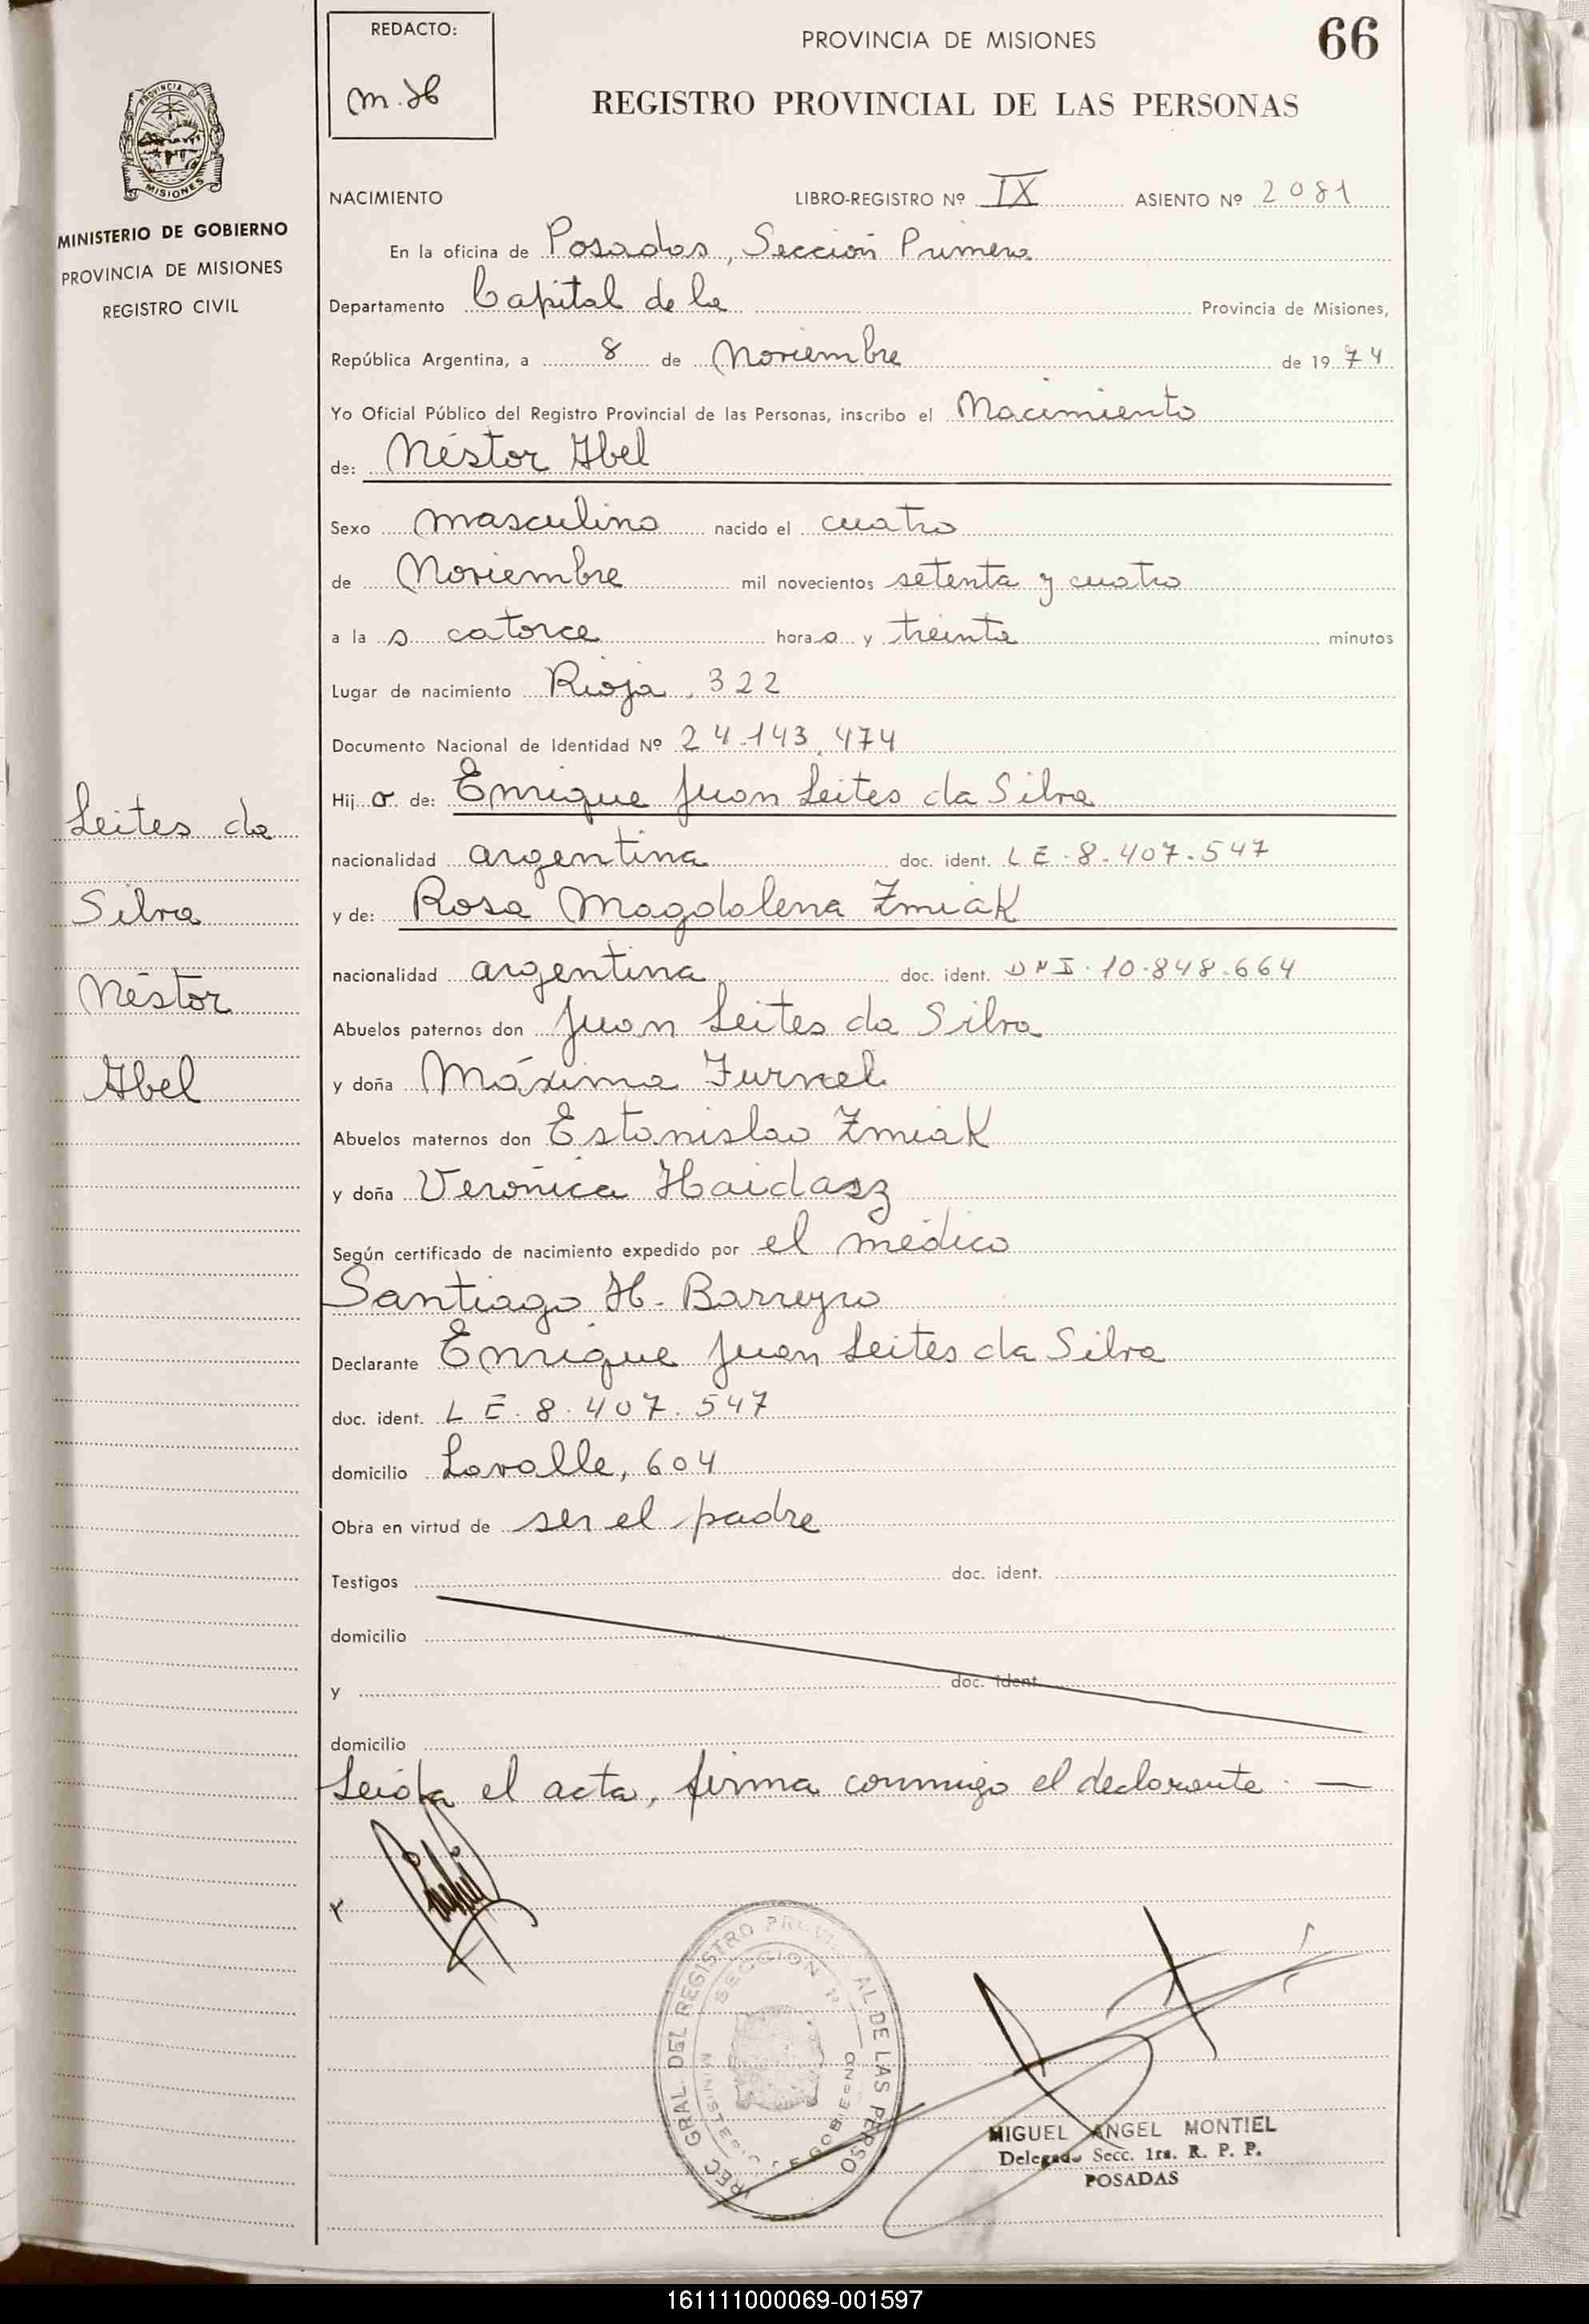 REDACTO:
m.H
PROVINCIA DE MISIONES
66
REGISTRO PROVINCIAL DE LAS PERSONAS
PROVINCIA DE
MISIONES
MINISTERIO DE GOBIERNO
PROVINCIA DE MISIONES
REGISTRO CIVIL
NACIMIENTO LIBRO-REGISTRO Nº IX ASIENTO Nº 2081
En la oficina de Posadas, Sección Primera
Departamento Capital de la Provincia de Misiones,
República Argentina, a 8 de Noviembre de 1974
Yo Oficial Público del Registro Provincial de las Personas, inscribo el Nacimiento
de: Néstor Abel
Sexo masculino nacido el cuatro
de Noviembre mil novecientos setenta y cuatro
a la s catorce hora s y treinta minutos
Lugar de nacimiento Rioja, 322
Documento Nacional de Identidad Nº 24.143.474
Hij o de: Enrique Juan Leites da Silva
nacionalidad argentina doc. ident. LE.8.407.547
y de: Rosa Magdalena Zmiak
nacionalidad argentina doc. ident. DNI.10.848.664
Abuelos paternos don Juan Leites da Silva
y doña Máxima
Abuelos maternos don Estanislao Zmiak
y doña Verónica Haidasz
Según certificado de nacimiento expedido por el médico
Santiago H. Barreyro
Declarante Enrique Juan Leites da Silva
doc. ident. LE.8.407.547
domicilio Lavalle, 604
Obra en virtud de ser el padre
Testigos doc. ident.
domicilio
y doc. ident.
domicilio
Leída el acta, firma conmigo el declarante. —
Leites da
Silva
Néstor
Abel
SECCION 1ª
MIGUEL ANGEL MONTIEL
Delegado Secc. 1ra. R. P. P.
POSADAS
161111000069-001597